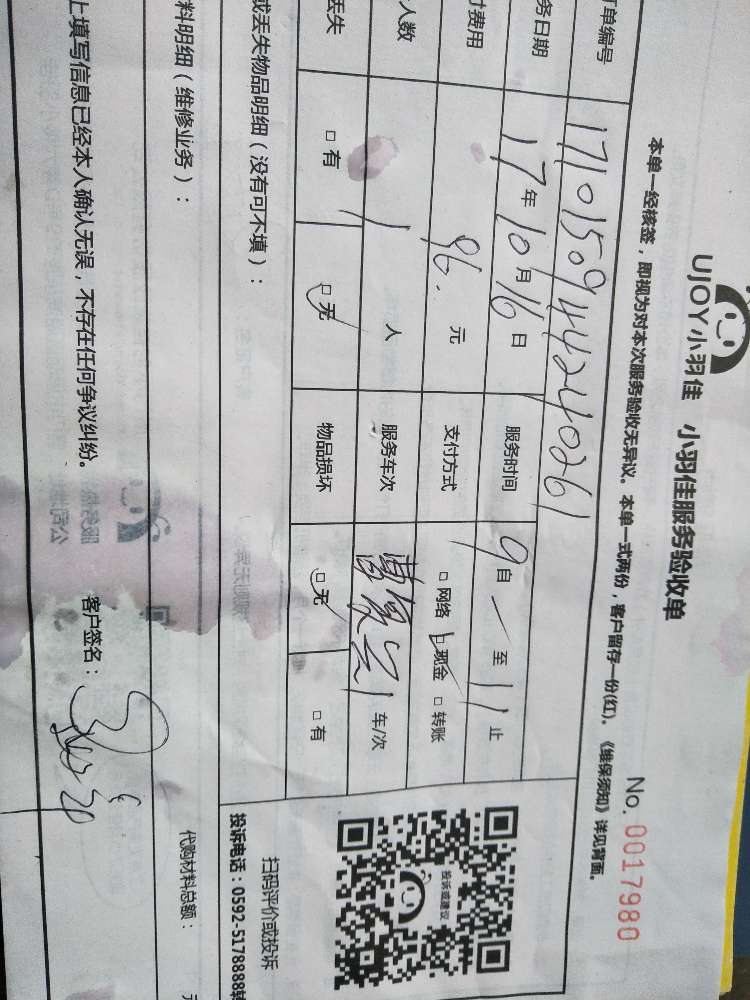 UJOY小羽佳 小羽佳服务验收单
No. 0017980
本单一经核签，即视为对本次服务验收无异议。本单一式两份，客户留存一份(红)。《维保须知》详见背面。
订单编号 17101509444240261
务日期 17年10月16日 服务时间 9自 至11止
付费用 96.元 支付方式 □网络 □现金 □转账
人数 1人 服务车次 车/次
丢失 □有 □无 物品损坏 □无 □有
或丢失物品明细（没有可不填）：
料明细（维修业务）：
代购材料总额：
上填写信息已经本人确认无误，不存在任何争议纠纷。
客户签名：
投诉或建议
扫码评价或投诉
投诉电话：0592-5178888转